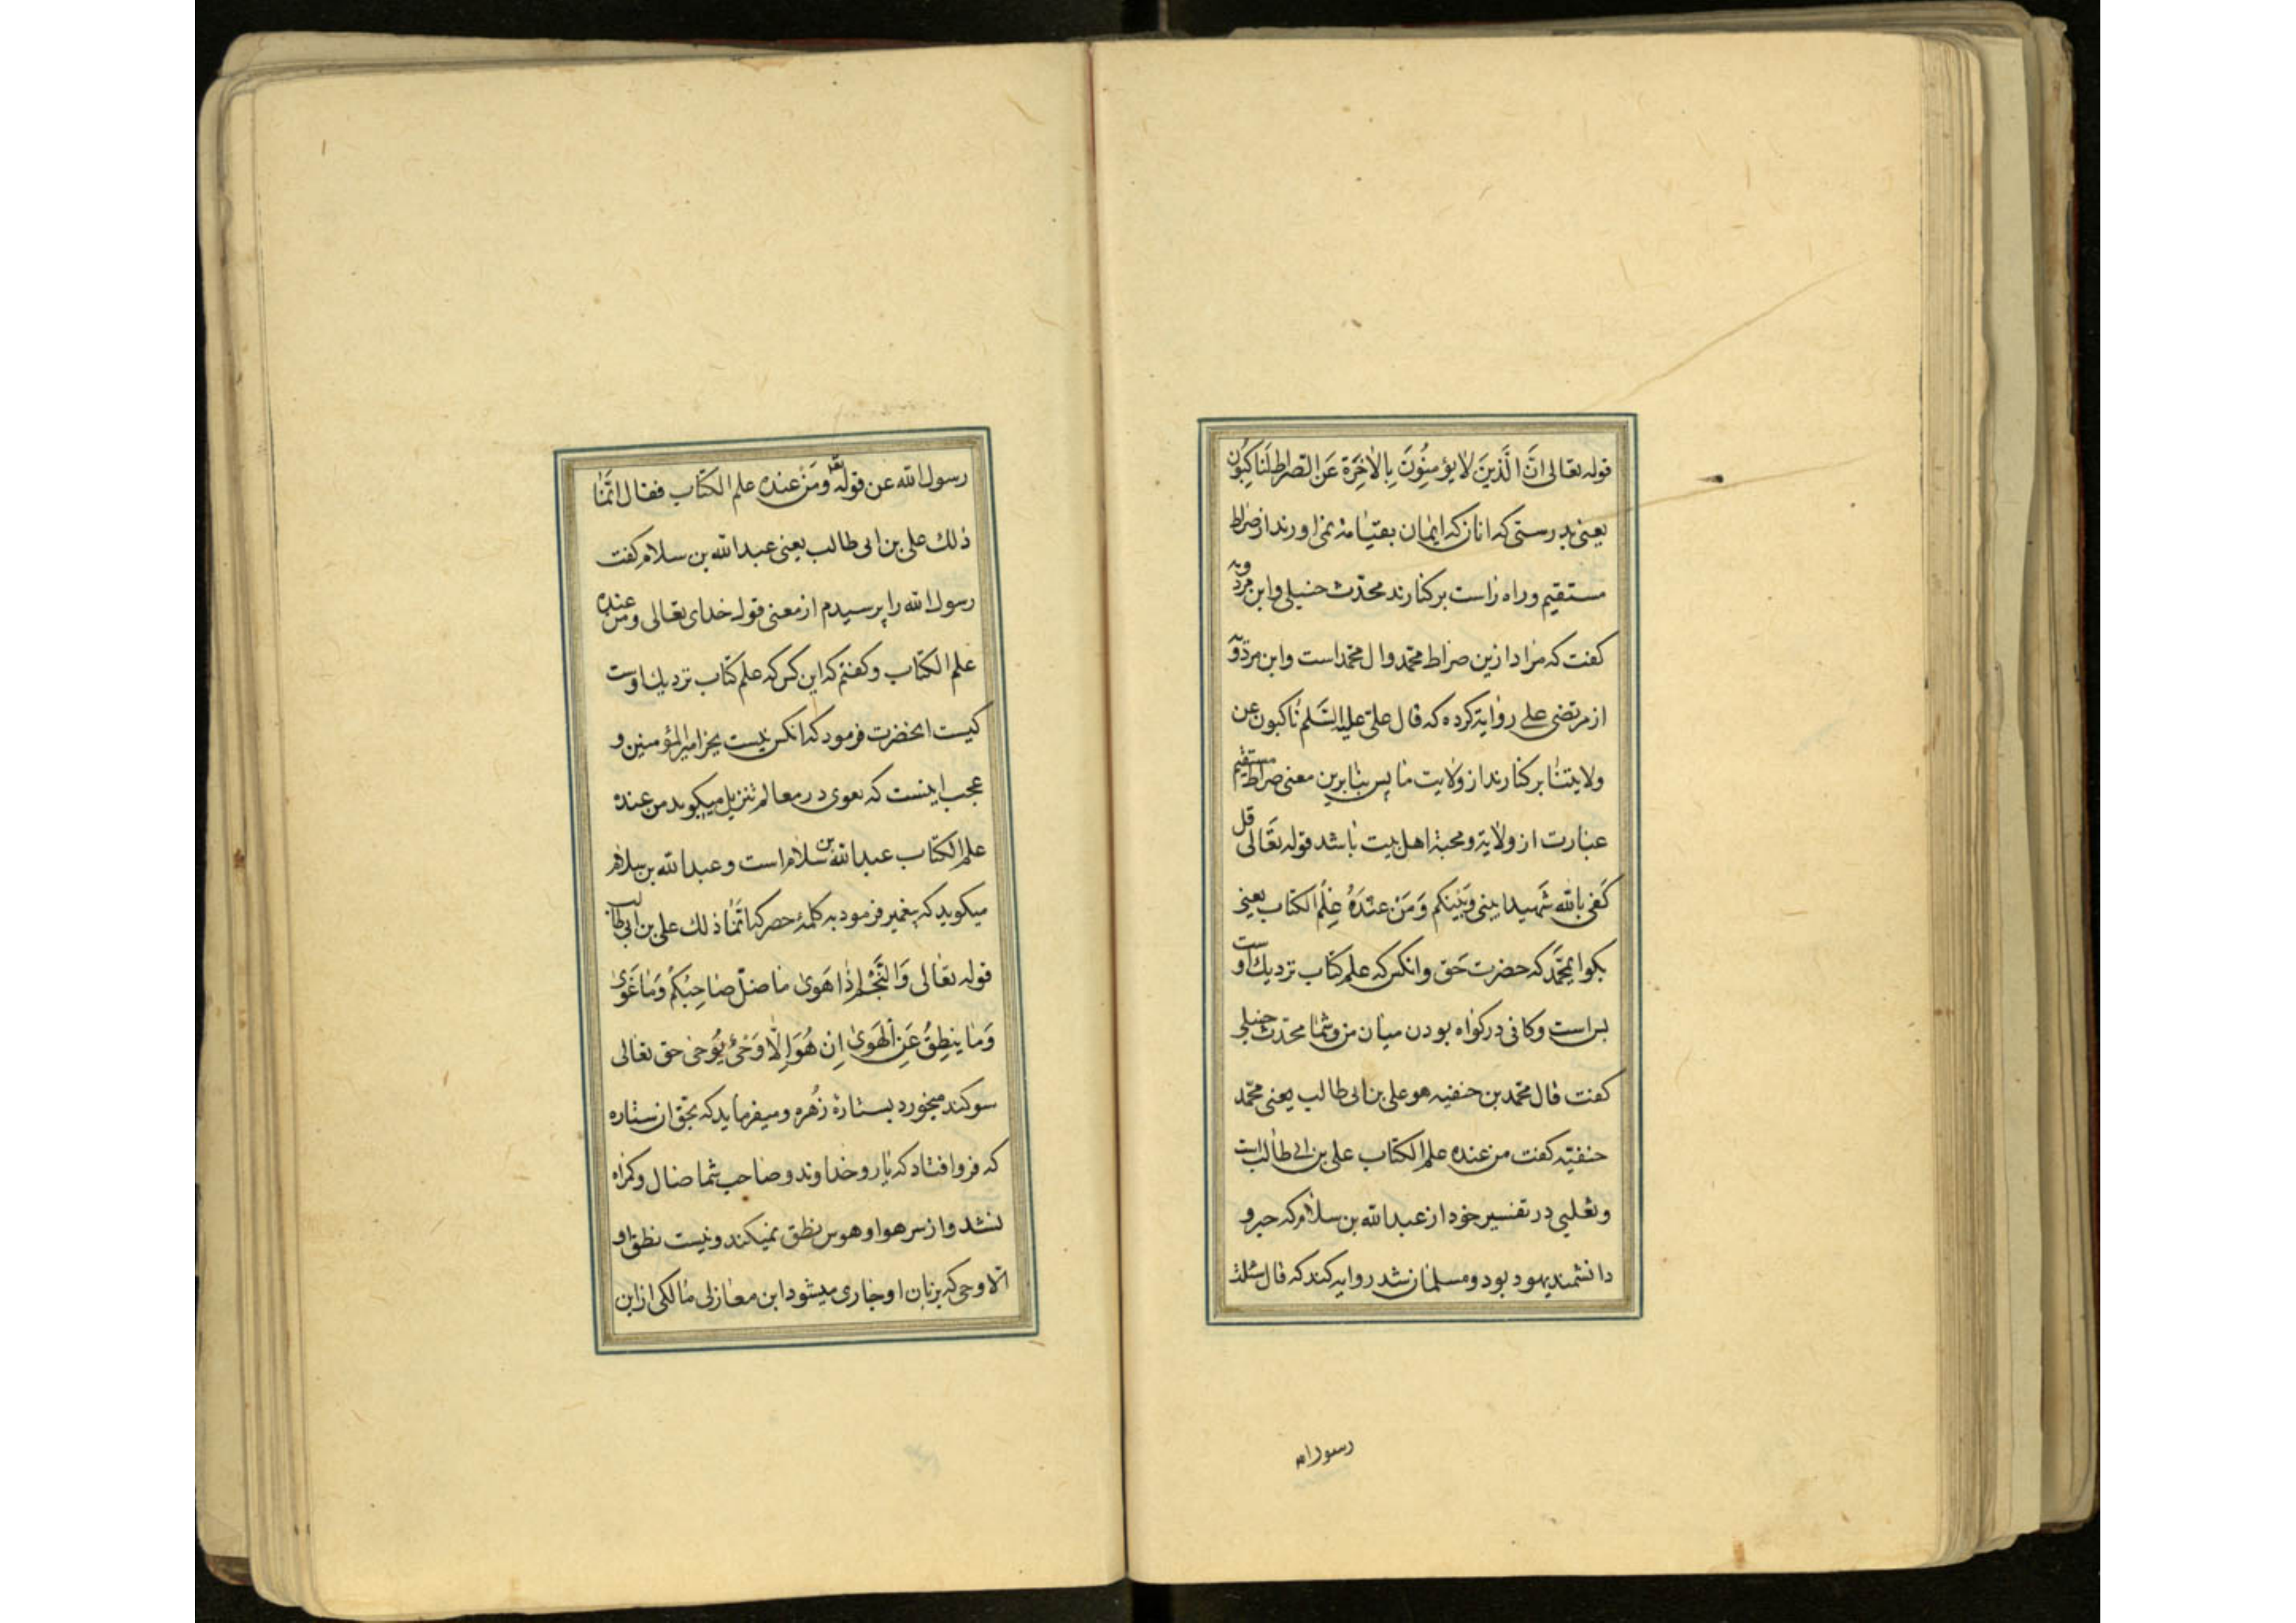 قوله تعالی انَّ الَّذینَ لا یؤمِنُونَ بِالاٰخِرَة عَنِ الصراط لَناکِبُون
یعنی بدرستی که انان که ایمان بقیامة نمی اورند از صراط
مستقیم و راه راست بر کنارند محدّث حنبلی و ابن مردویه
کفت که مراد ازین صراط محمّد وال محمّد است وابن مردویه
از مرتضی علی روایة کرده که قال علیّ علیه السَّلم ناکبون عن
ولایتنا بر کنارند از ولایت ما پس بنابرین معنی صراط مستقیم
عبارت از ولایة و محبة اهل بیت باشد قوله تَعَالی قل
کَفی بالله شَهیدا بینی وَبَینکم وَمَن عندَهُ عِلمُ الکتاب یعنی
بکو ایمحَمَّد که حضرت حَق وانکس که علم کتاب نزدیك اوست
بس است و کافی در کواه بودن میان من وشما محدّث حنبلی
کفت قال محمّد بن حنفیه هو علی بن ابی طالب یعنی محمّد
حنفیّه کفت من عنده علم الکتاب علی بن ابی طالب است
و ثعلبی در تفسیر خود از عبدالله بن سلام که حبر و
دانشمند یهود بود و مسلمان شد روایه کند که قال سئلت
رسول الله
رسول الله عن قوله تعا ومَن عنده علم الکتاب فقال انَّمٰا
ذلك علی بن ابی طالب یعنی عبدالله بن سلام کفت
رسول الله را پرسیدم از معنی قوله خدای تعالی ومن عنده
علم الکتاب وکفتم که این کس که علم کتاب نزدیك اوست
کیست انحضرت فرمود که انکس نیست بجز امیر المؤمنین و
عجب اینست که بعوی در معالم تنزیل میکوید من عنده
علم الکتاب عبدالله بن سلام است وعبدالله بن سلام
میکوید که پیغمبر فرمود به کلمهٔ حصر که انَّمٰا ذلك علی بن ابی طالب
قوله تعالی وَالنَّجْمِ اِذٰا هَویٰ ماضلّ صٰاحِبُکُم وَمٰا غَویٰ
وَمٰا ینطِقُ عَنِ الهَویٰ اِن هُوَ اِلّٰا وَحْیٌ یُوحیٰ حق تعالی
سوکند میخورد بستارهٔ زُهره ومیفرماید که بحق ان ستاره
که فروافتاد که یار و خداوند و صاحب شما ضال و کمراه
نشد و از سر هوا و هوس نطق نمیکند ونیست نطق او
الّا وحی که بزبان او جاری میشود ابن معازلی مالکی از ابن